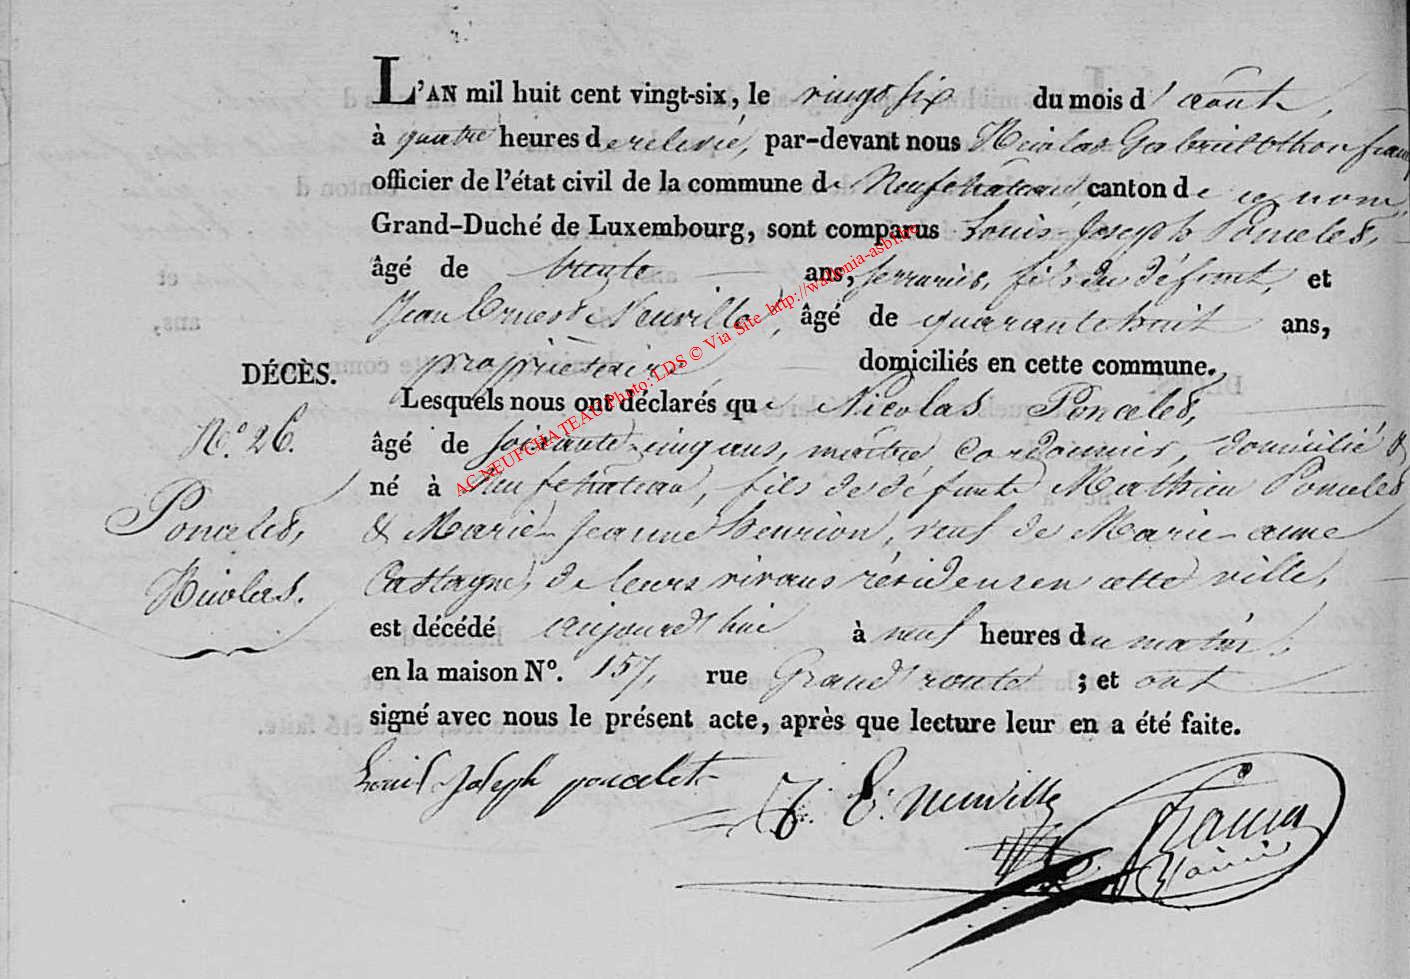 L'AN mil huit cent vingt-six, le vingt six du mois d'août,
à quatre heures de relevé, par-devant nous Nicolas Gabriel Othon
officier de l'état civil de la commune de Neufchateau, canton de ce nom
Grand-Duché de Luxembourg, sont comparus Louis-Joseph Poncelet,
âgé de trente ans, serrurier, fils du défunt, et
Jean Ernest Neuville, âgé de quarante huit ans,
propriétaire, domiciliés en cette commune.
DÉCÈS.
Lesquels nous ont déclarés que Nicolas Poncelet,
N.° 26.
âgé de soixante-cinq ans, maître cordonnier, domicilié &
né à Neufchateau, fils de defunts Mathieu Poncelet
Poncelet,
& Marie-Jeanne henrion, veuf de Marie-anne
Nicolas.
Castagne, de leurs vivans résidens en cette ville,
est décédé aujourd'hui à neuf heures du matin,
en la maison N°. 157, rue Grand'route ; et ont
signé avec nous le présent acte, après que lecture leur en a été faite.
Louis Joseph poncelet
J. E. Neuville
maire
AC NEUFCHATEAU Photo: LDS © Via Site http://wallonia-asbl.be